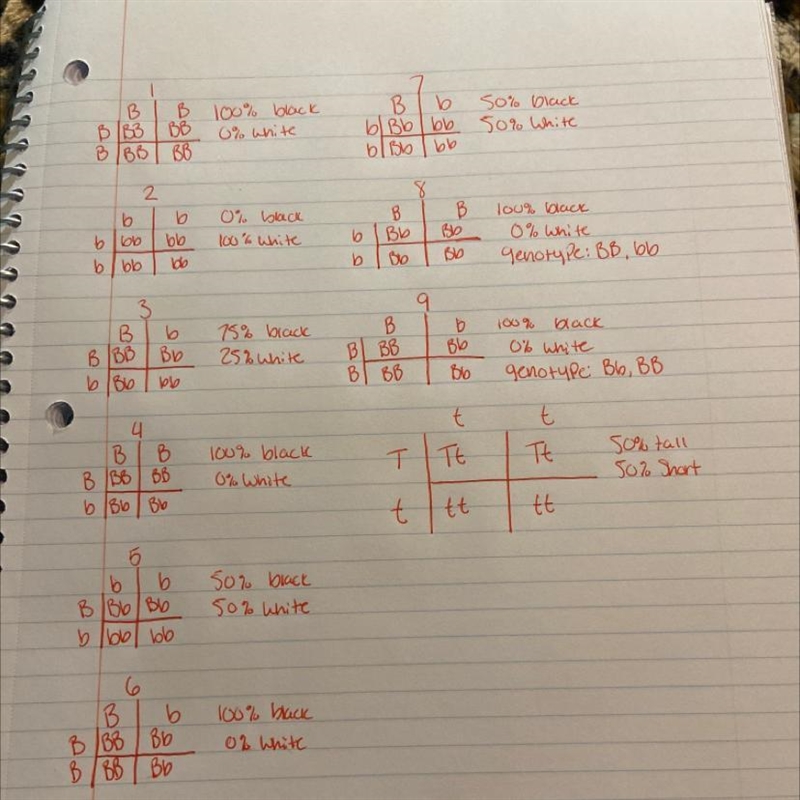 1
B B 100% black
B BB BB 0% white
B BB BB
2
b b 0% black
b bb bb 100% white
b bb bb
3
B b 75% black
B BB Bb 25% white
b Bb bb
4
B B 100% black
B BB BB 0% white
b Bb Bb
5
b b 50% black
B Bb Bb 50% white
b bb bb
6
B b 100% black
B BB Bb 0% white
B BB Bb
7
B b 50% black
b Bb bb 50% white
b Bb bb
8
B B 100% black
b Bb Bb 0% white
b Bb Bb genotype: BB, bb
9
B b 100% black
B BB Bb 0% white
B BB Bb genotype: Bb, BB
t t
T Tt Tt 50% tall
50% short
t tt tt